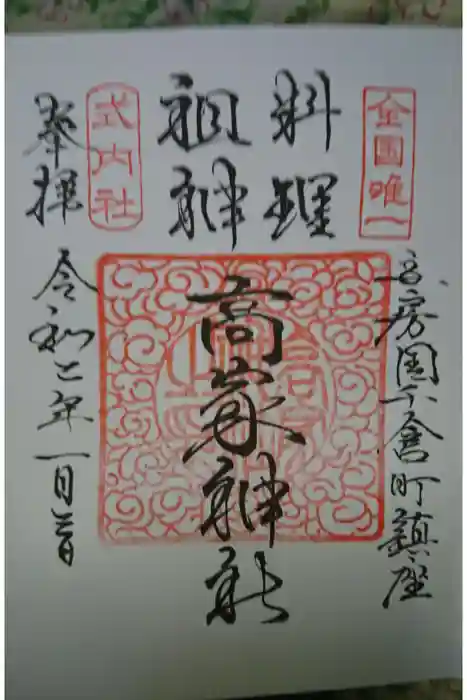 全国唯一
安房国千倉町鎮座
料理
祖神
高家神社
式内社
奉拝
令和二年一月三日